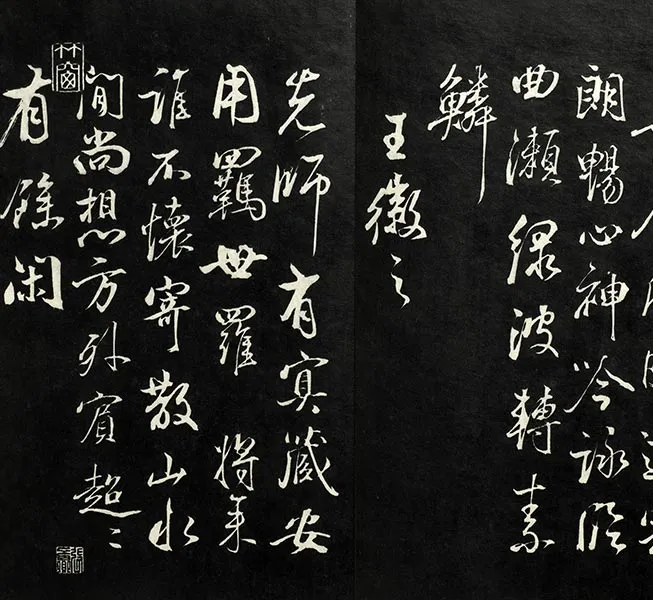 朗暢心神吟詠臨
曲瀨綠波轉素
鱗
王徽之
先師有冥藏安
用羈世羅將來
誰不懷寄散山水
閒尚想方外賓超〻
有餘閑
竹窗